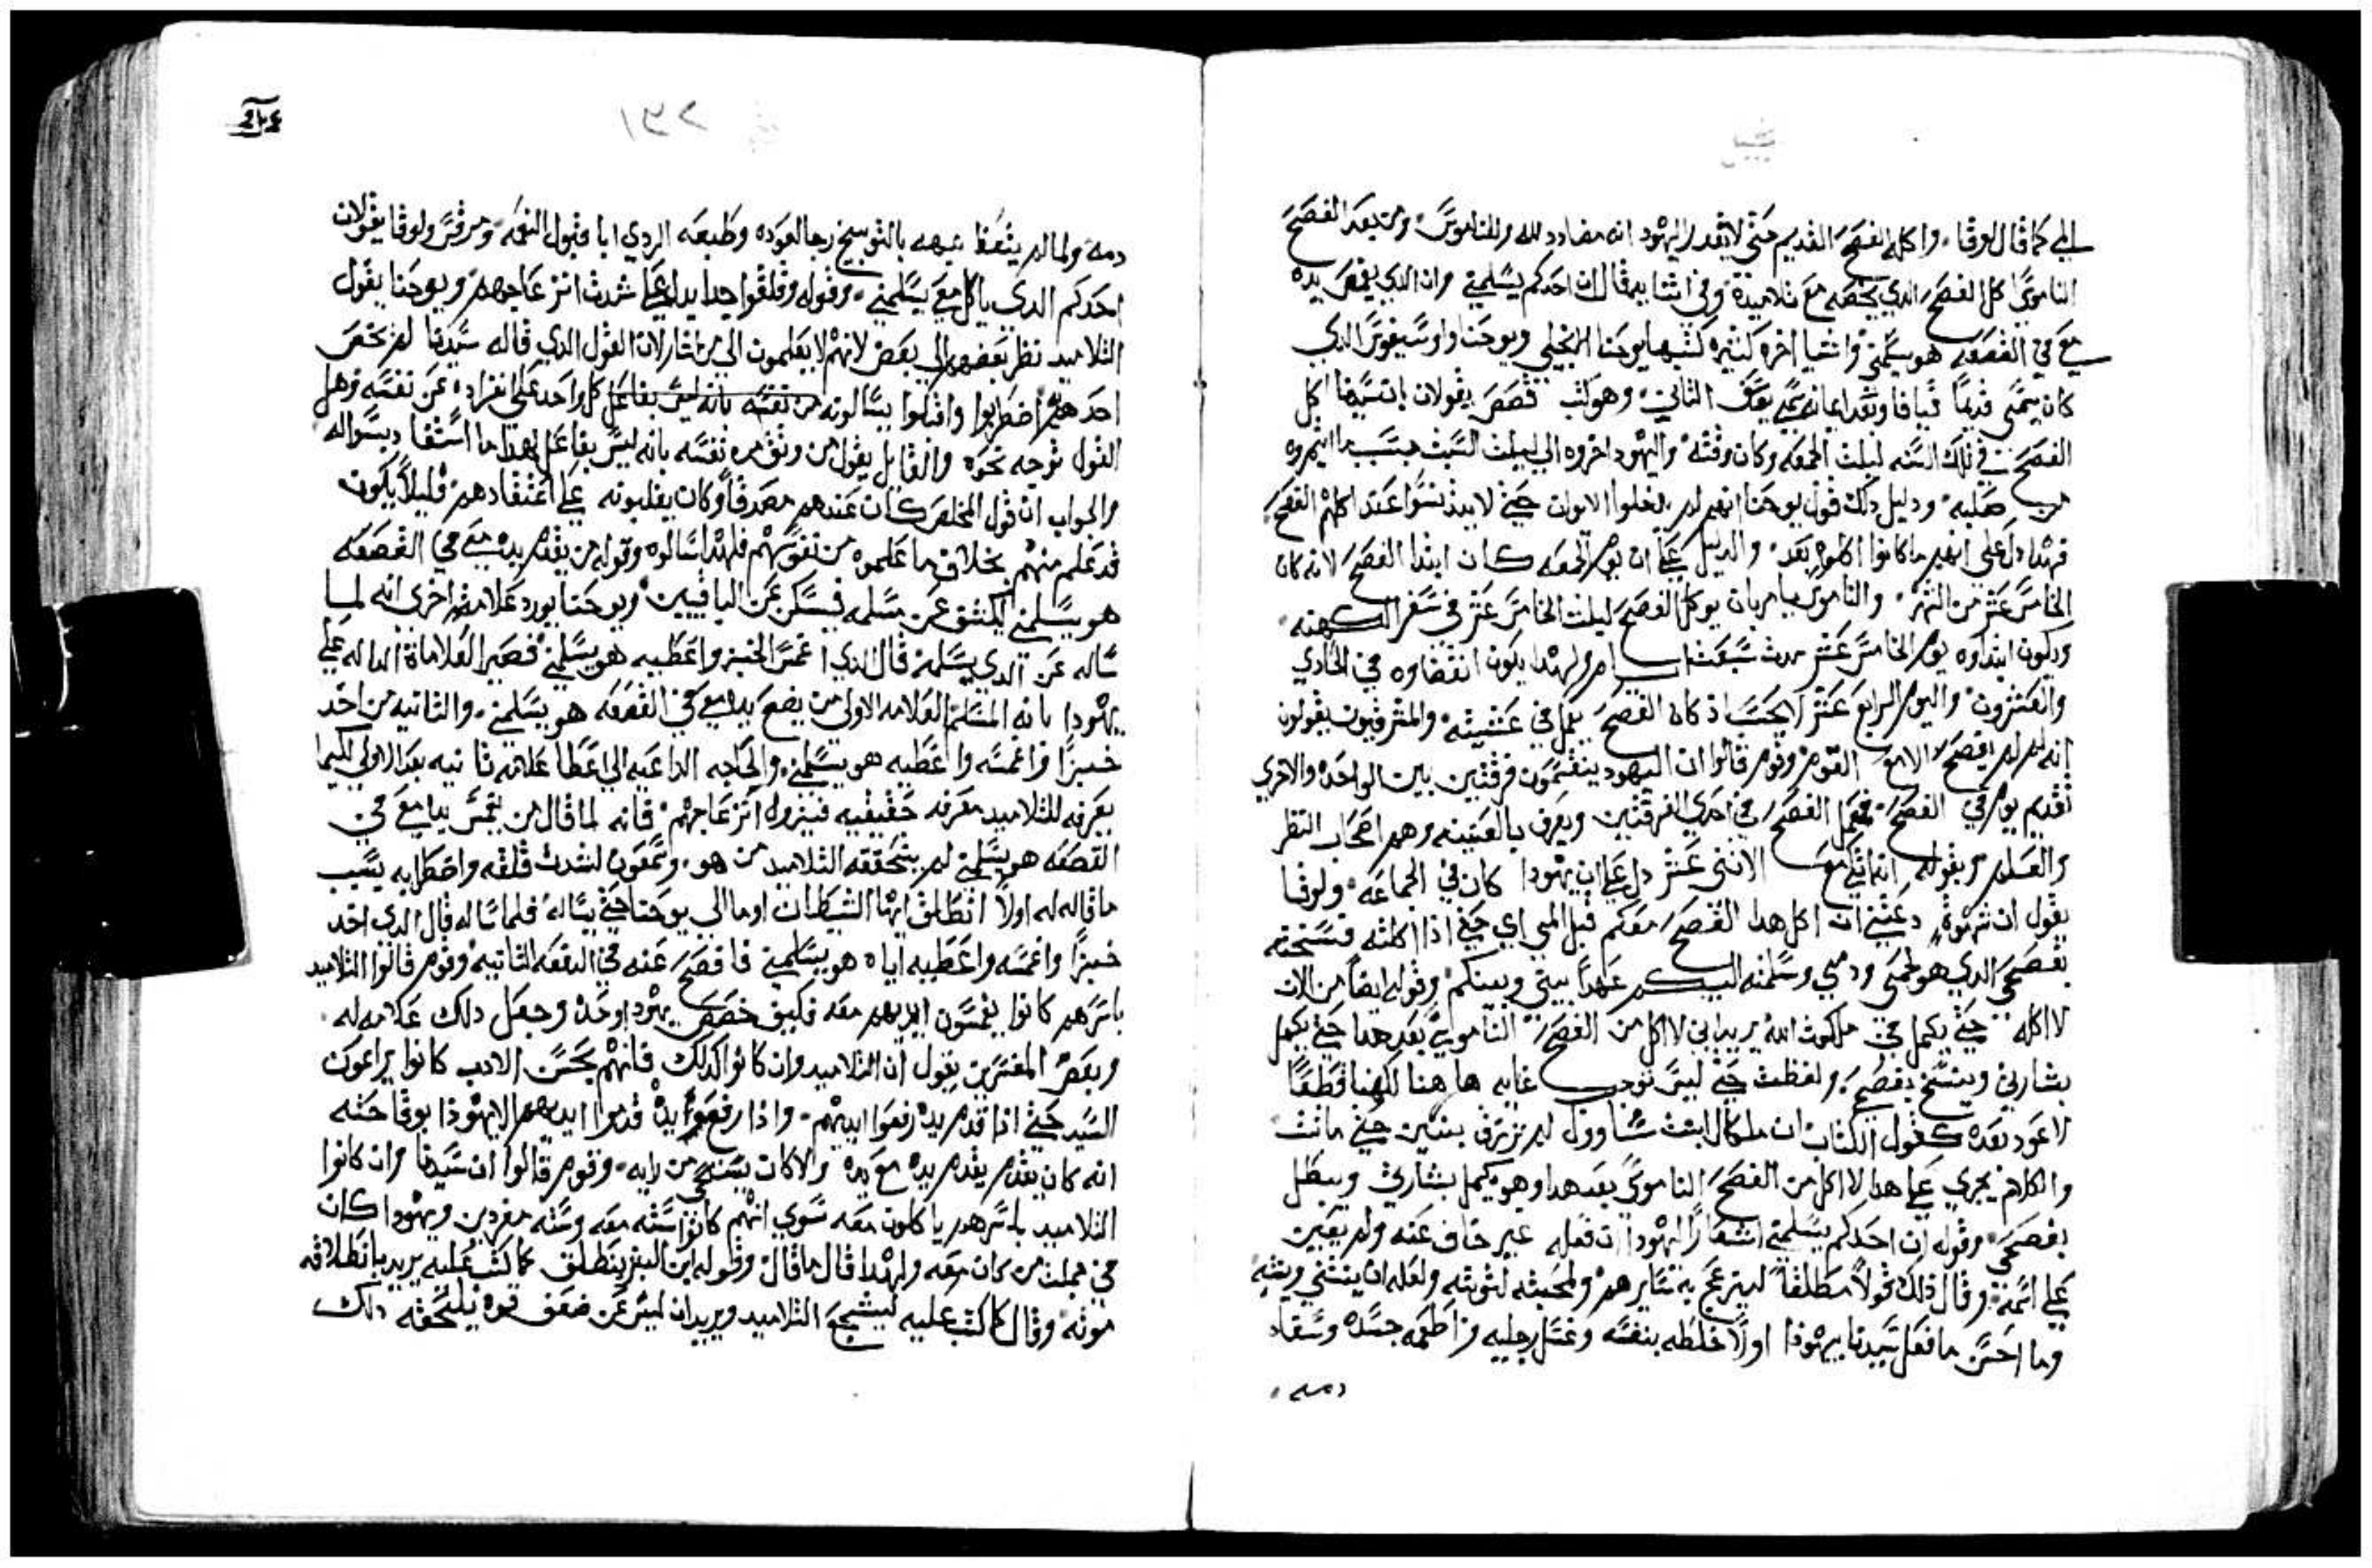 الي كما قال لوقا. واكله الفصح القديم حتى لا يقدر اليهود انه مضادد لله وللناموس ومن بعد الفصح
الناموسي اكل الفصح الدي يخصه مع تلاميده وفي اثنا يه قال ان احدكم يسلمني وان الدي يغمص يده
معي في القصعه هو يسلمني واشيا اخره كثيره كتبها يوحنا الانجيلي ويوحنا واوسيفوس الدي
كان يسمى قديما قيافا وبعد ايمانه سمي يوسف الثاني وهو كتب قصص يقولان ان سيدنا اكل
الفصح في تلك السنه ليلت الجمعه وكان وقته واليهود اخروه الي ليلت السبت بسبب ما ايتمروه
من صلبه ودليل دلك قول يوحنا انهم لم يدخلوا الايوان حتي لا يتدنسوا عند اكلهم الفصح
فهدا دل على انهم ما كانوا اكلوه بعد. والدليل علي ان يوم الجمعه كان ابتدا الفصح لانه كان
الخامس عشر من الشهر. والناموس يامر بان يوكل الفصح ليلت الخامس عشر في سفر الكهنه
ويكون ابتداوه يوم الخامس عشر مدت سبعت ايام ولهدا يكون انقضاوه في الحادي
والعشرون واليوم الرابع عشر لا يحسب اد كان الفصح يعمل في عشيته والمشرقيون يقولون
انه لم يفصح الا مع القوم وقوم قالوا ان اليهود ينقسمون فرقتين بين الواحده والاخري
تقديم يوم في الفصح فعمل الفصح في احدي الفرقتين ويعرف بالعتيقه وهم اصحاب النظر
والعلم وبقوله انه اتكي مع الاثني عشر دل علي ان يهودا كان في الجماعه ولوقا
يقول ان شهوة دعتني ان اكل هدا الفصح معكم قبل المي اي حتي ادا اكلته فسخته
بفصحي الدي هو لحمي ودمي وسلمته اليكم عهدا بيني وبينكم وقوله ايضا من الان
لا اكله حتي يكمل في ملكوت الله يريد اني لا اكل من الفصح الناموسي بعد هدا حتي يكمل
بشارتي وينسخ بفصحي ولفظت حتي ليس توجب غايه ها هنا لكنها قطعا
لا عود بعده كقول الكتاب ان ملكال ابنت شاوول لم ترزق بنين حتي ماتت
والكلام يجري علي هدا لا اكل من الفصح الناموسي بعد هدا وهو يكمل بشارتي ويبطل
بفصحي وقوله ان احدكم يسلمني اشعارا ليهودا ان فعله غير خاف عنه ولم يعين
علي اسمه وقال دلك قولا مطلقا لينزعج به سايرهم ولمحبته لتوبته ولعله ان ينثني وينتبه
وما احسن ما فعل سيدنا بيهودا اولا خلطه بنفسه وغسل رجليه واطعمه جسده وسقاه
دمه
دمه ولما لم يتعظ نبهه بالتوبيخ رجا لعوده وطبعه الردي ابا قبول النعمه ومرقس ولوقا يقولان
احدكم الدي ياكل معي يسلمني. وقوله وقلقوا جدا يدل علي شدت انزعاجهم ويوحنا يقول
التلاميد نظر بعضهم الي بعض لانهم لا يعلمون الي من اشار لان القول الدي قاله سيدنا لم يخص
احدهم اضطربوا واقبلوا يسالونه من نفسه بانه ليس بفاعل كل واحد علي انفراده عن نفسه وهل
القول توجه نحوه والقايل يقول من وثق من نفسه بانه ليس بفاعل لهدا ما استفاد بسواله
والجواب ان قول المخلص كان عندهم مصدقا وكان يغلبونه علي اعتقادهم قليلا يكون
قد علم منهم بخلاف ما علموه من نفوسهم فلهدا سالوه وقوله من يقدم يده معي في القصعه
هو يسلمني ليكشف عن مسلمه فيسكن عن الباقيين ويوحنا يورد علامت اخري انه لما
ساله عن الدي يسلمه قال الدي اغمس الخبز واعطيه هو يسلمني فصير العلامات الداله علي
يهودا بانه المسلم العلامه الاولي من يضع يده معي في القصعه هو يسلمني. والثانيه من اخد
خبزا واغمسه واعطيه هو يسلمني. والحاجه الداعيه الي عطا علامه ثانيه بعد الاولي لكيما
يعرفه للتلاميد معرفه حقيقيه فيزول انزعاجهم فانه لما قال من يغمس يده معي في
القصعه هو يسلمني لم يتحققه التلاميد من هو. وشمعون لشدت قلقه واضطرابه بسبب
ما قاله له اولا انطلق ايها الشيطان اوما الي يوحنا حتي يساله فلما ساله قال الدي اخد
خبزا واغمسه واعطيه اياه هو يسلمني فافصح عنه في الدفعه الثانيه وقوم قالوا التلاميد
باسرهم كانوا يغمسون ايديهم معه فكيف خصص يهودا وحده وجعل دلك علامه له
وبعض المفسرين يقول ان التلاميد وان كانوا كدلك فانهم بحسن الادب كانوا يراعون
السيد حتي ادا قدم يده رفعوا ايديهم. وادا رفع هو يده قدموا ايديهم الا يهودا بوقاحته
انه كان يقدم يده مع يده والا كان يستحي من رايه. وقوم قالوا ان سيدنا وان كانوا
التلاميد باسرهم ياكلون معه سوي انهم كانوا سته معه وسته مفردين ويهودا كان
في جملت من كان معه ولهدا قال ما قال وقوله ابن البشر ينطلق كما كتب عليه يريد بانطلاقه
موته وقال كما كتب عليه ليشجع التلاميد ويريد ان ليس عن ضعف قوه يلحقه دلك